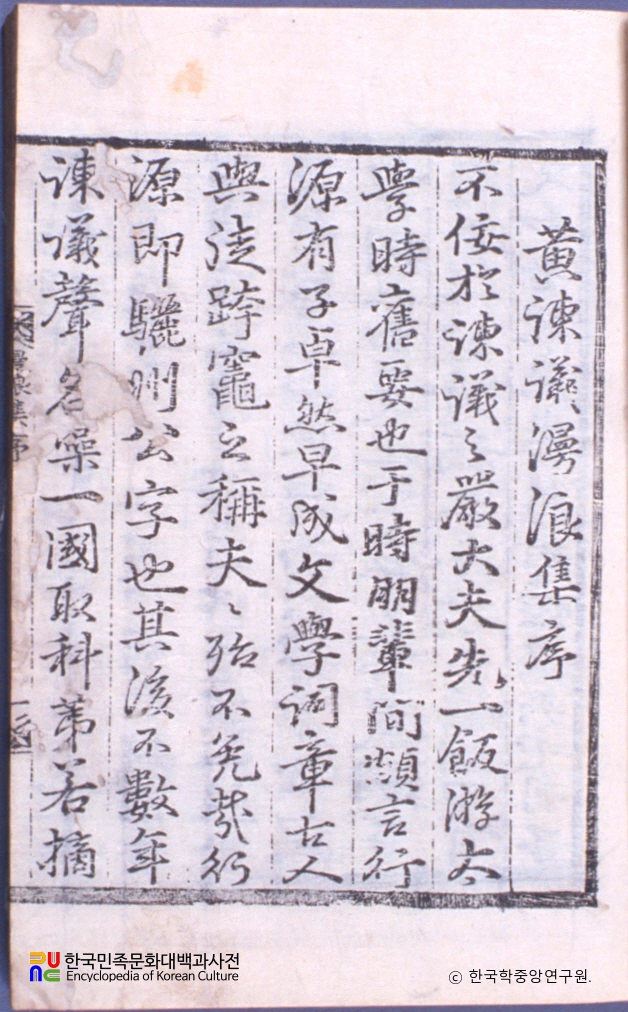 黃諫議漫浪集序
不佞於諫議之嚴大夫先一飯游太
學時舊要也于時朋輩間言行
源有子卓然早成文學詞章古人
與徒跨竈之稱夫〻殆不免哉行
源即驪州公字也其後不數年
諫議聲名噪一國取科第若摘
漫浪集序
한국민족문화대백과사전
Encyclopedia of Korean Culture
© 한국학중앙연구원.